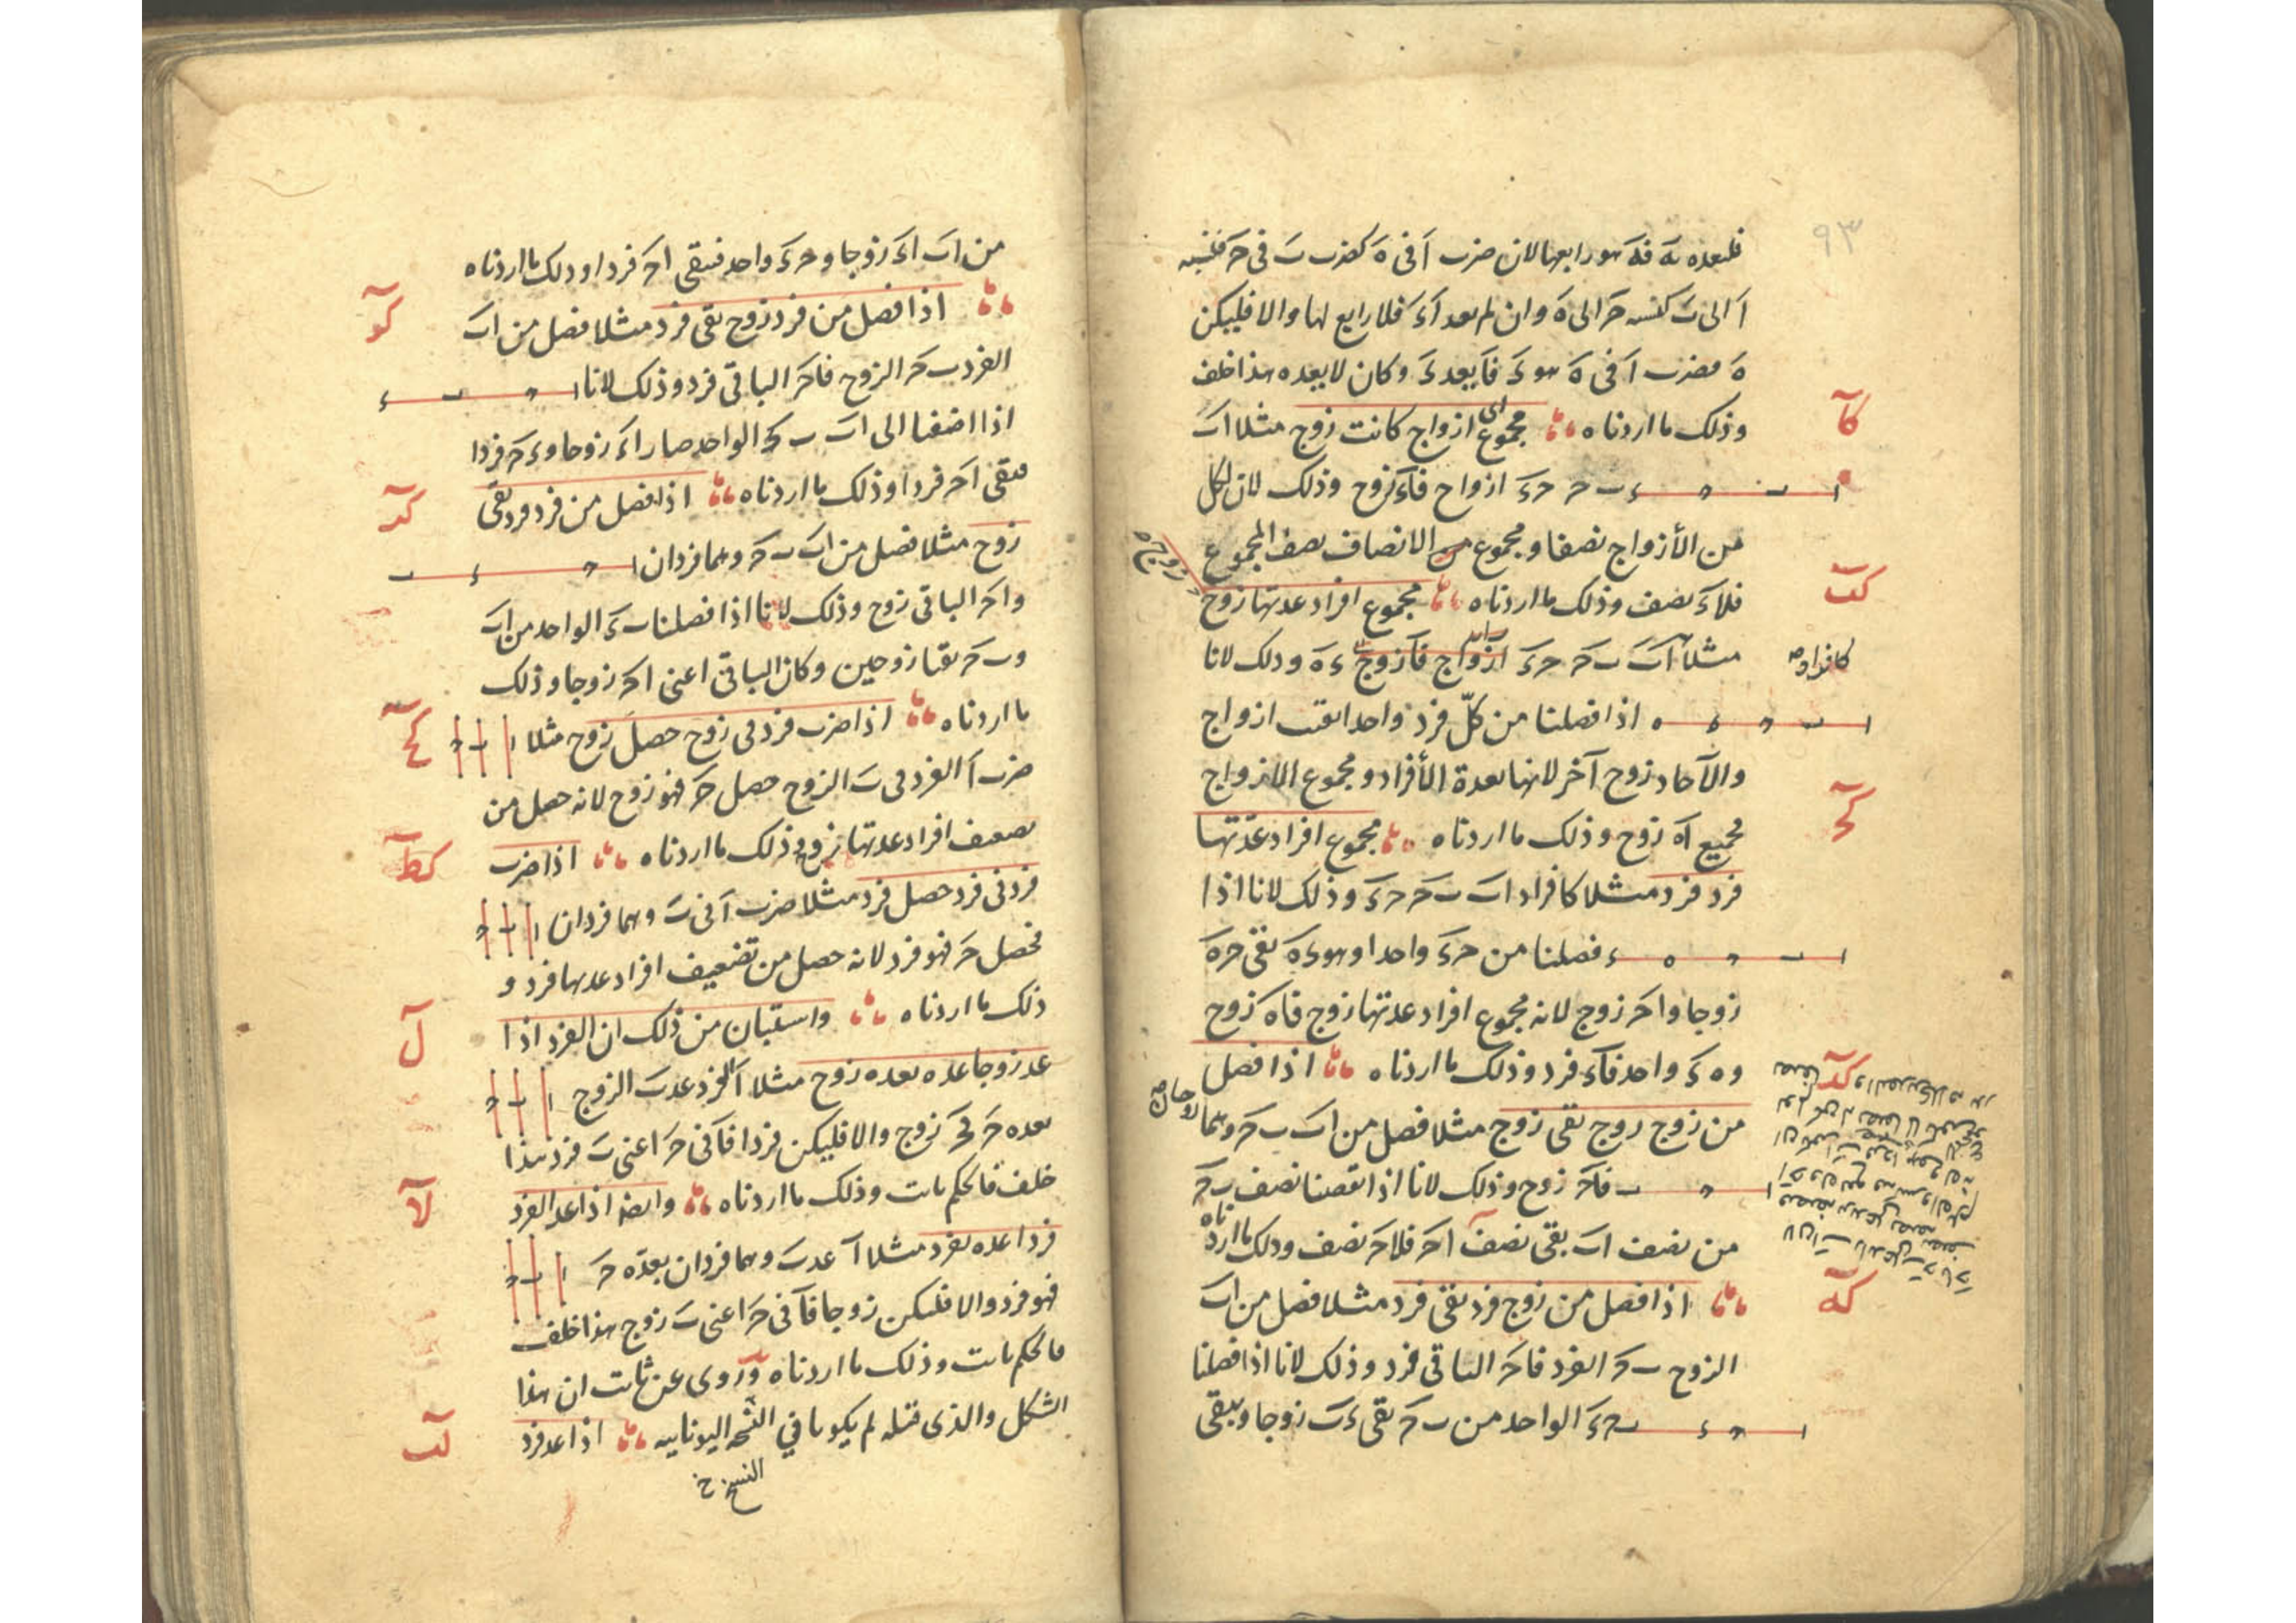 ٩٣
فليعده بَه فهَ هو رابعها لان ضرب اَ فى هَ كضرب بَ فى حَ فنسبه
اَ الى بَ كنسبه حَ الى هَ وان لم يعد اَ ءَ فلا رابع لها والا فليكن
هَ فضرب اَ فى هَ هو ءَ فاَ يعد ءَ وكان لا يعده هذا خلف
كآ
وذلك ما اردناه مجموع اى ازواج كانت زوج مثلا اب
ا ب ح ء ب ح ح ء ازواج فاء زوج وذلك لان لكل
من الأزواج نصفا ومجموع الانصاف نصف المجموع
كب
فلاءَ نصف وذلك ما اردناه مجموع افراد عدتها زوج زوج
كافراد
مثلا اب ب ح ح ء ء ه وذلك لانا
ا ب ح ء ه اذا فصلنا من كلّ فرد واحدا بقيت ازواج
والآحاد زوج آخر لانها بعدة الأفراد ومجموع الازواج
كح
فجميع اه زوج وذلك ما اردناه مجموع افراد عدّتها
فرد فرد مثلا كافراد اب ب ح ح ء وذلك لانا اذا
ا ب ح ه ء فصلنا من ح ء واحدا وهو ء ه بقى ح ه
زوجا و ا ح زوج لانه مجموع افراد عدتها زوج فا ه زوج
كد
و ه ء واحد فاء فرد وذلك ما اردناه اذا فصل
من زوج زوج بقى زوج مثلا فصل من اب ب ح وهما زوجان
ا ح ب فاح زوج وذلك لانا اذا نقصنا نصف ب ح
من نصف اب بقى نصف اح فلاح نصف وذلك ما اردناه
كه
اذا فصل من زوج فرد بقى فرد مثلا فصل من اب
الزوج ب ح الفرد فاح الباقى فرد وذلك لانا اذا فصلنا
ا ح ء ب ح ء الواحد من ب ح بقى ء ب زوجا ويبقى
من اب اء زوجا و ح ء واحد فيبقى اح فردا وذلك ما اردناه
كو
اذا فصل من فرد زوج بقى فرد مثلا فصل من اب
الفرد ب ح الزوج فاح الباقى فرد وذلك لانا ا ح ب ء
اذا اضفنا الى اب ب ء الواحد صار اء زوجا و ء ح فردا
كز
فيبقى اح فردا وذلك ما اردناه اذا فصل من فرد فرد بقى
زوج مثلا فصل من اب ب ح وهما فردان ا ح ء ب
و اح الباقى زوج وذلك لانا اذا فصلنا ب ء الواحد من اب
و ب ح بقيا زوجين وكان الباقى اعنى اح زوجا وذلك
كح
ما اردناه اذا ضرب فرد فى زوج حصل زوج مثلا ا ب ح
ضرب ا الفرد فى ب الزوج حصل ح فهو زوج لانه حصل من
كط
تضعيف افراد عدتها زوج وذلك ما اردناه اذا ضرب
فرد فى فرد حصل فرد مثلا ضرب ا فى ب وهما فردان ا ب ح
فحصل ح فهو فرد لانه حصل من تضعيف افراد عدتها فرد و
ل
ذلك ما اردناه واستبان من ذلك ان الفرد اذا
عد زوجا عده بعده زوج مثلا ا الفرد عد ب الزوج ا ب ح
بعده ح فح زوج والا فليكن فردا فا فى ح اعنى ب فرد هذا
لا
خلف فالحكم ثابت وذلك ما اردناه وايضا اذا عد الفرد
فردا عده بفرد مثلا ا عد ب وهما فردان بعدّه ح ا ب ح
فهو فرد والا فليكن زوجا فا فى ح اعنى ب زوج هذا خلف
فالحكم ثابت وذلك ما اردناه وروى عن ثابت ان هذا
لب
الشكل والذى قبله لم يكونا في النسخه اليونانيه اذا عد فرد
النسخ خ